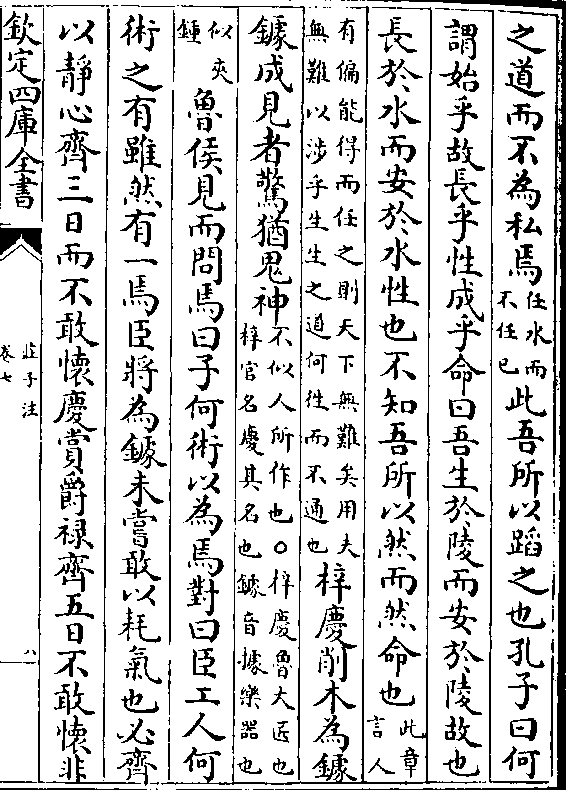 之道而不為私焉任水而不任已此吾所以蹈之也孔子曰何
謂始乎故長乎性成乎命曰吾生於陵而安於陵故也
長於水而安於水性也不知吾所以然而然命也此章言人
有偏能得而任之則天下無難矣用夫無難以涉乎生生之道何徃而不通也梓慶削木為鐻
鐻成見者驚猶鬼神不似人所作也○梓慶魯大匠也梓官名慶其名也鐻音據樂器也
似夾鍾魯侯見而問焉曰子何術以為焉對曰臣工人何
術之有雖然有一焉臣將為鐻未嘗敢以耗氣也必齊
以靜心齊三日而不敢懷慶賞爵禄齊五日不敢懷非
欽定四庫全書
莊子注
卷七
八